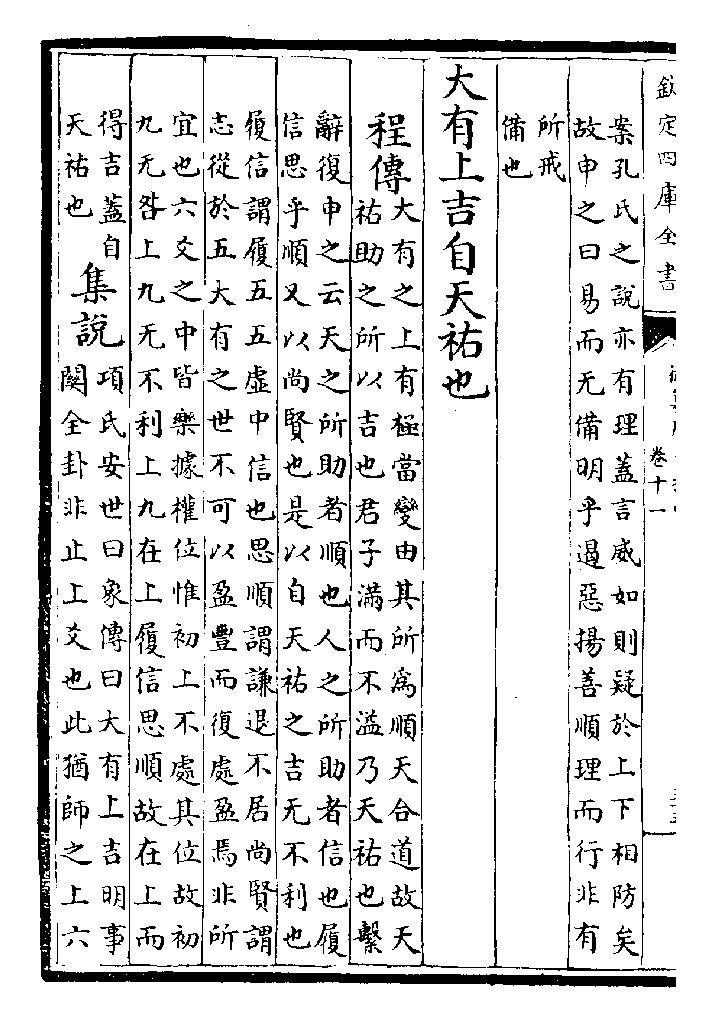 欽定四庫全書
卷十一
案孔氏之說亦有理蓋言威如則疑於上下相防矣
故申之曰易而无備明乎遏惡揚善順理而行非有
所戒
備也
大有上吉自天祐也
程傳
大有之上有極當變由其所為順天合道故天
祐助之所以吉也君子滿而不溢乃天祐也繫
辭復申之云天之所助者順也人之所助者信也履
信思乎順又以尚賢也是以自天祐之吉无不利也
履信謂履五五虛中信也思順謂謙退不居尚賢謂
志從於五大有之世不可以盈豐而復處盈焉非所
宜也六爻之中皆樂據權位惟初上不處其位故初
九无咎上九无不利上九在上履信思順故在上而
得吉蓋自
天祐也
集說
項氏安世曰象傳曰大有上吉明事
關全卦非止上爻也此猶師之上六